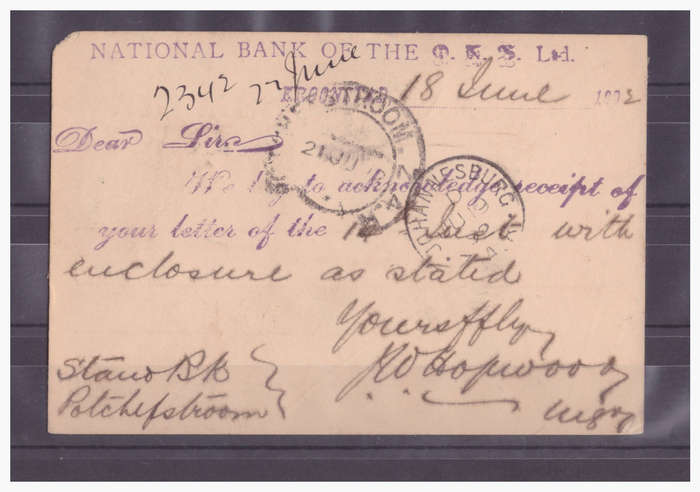 NATIONAL BANK OF THE O. F. S. Ltd.
2342 22 June
KROONSTAD 18 June
Dear Sirs
We beg to acknowledge receipt of
your letter of the Inst with
enclosure as stated
Yours ffly
Hopwood
Mgr
Stand Bk
Potchefstroom
STROOM. Z.A.R.
JOHANNESBURG